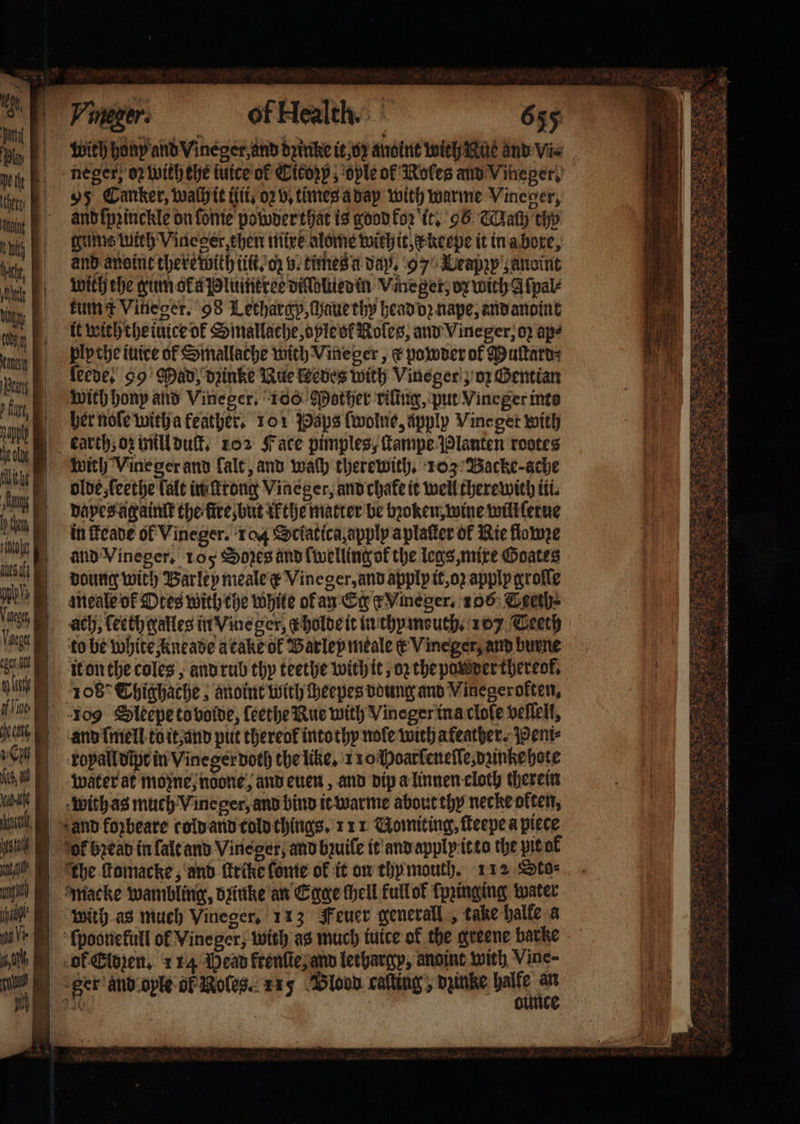 Vineger. of Health. 655
with hony and Vineger, and drinke it, or anoint with Rue and Vi-
neger, or with the iuice of Cicory, oyle of Roses and Vineger.
95 Canker, wash it iiii, or v, times a day with warme Vineger,
and sprinckle on some powder that is good for it. 96 Wash thy
gums with Vineger, then mixe alome with it, & keepe it in a boxe,
and anoint therewith iiii. or v. times a day. 97 Leapry, anoint
with the gum of a Plumtree dissolued in Vineger, or with Aspal-
tum & Vineger. 98 Lethargy, shaue thy head or nape, and anoint
it with the iuice of Smallache, oyle of Roses, and Vineger, or ap-
ply the iuice of Smallache with Vineger, & powder of Mustard-
seede. 99 Mad, drinke Rue seedes with Vineger, or Gentian
with hony and Vineger. 100 Mother rising, put Vineger into
her nose with a feather. 101 Paps swolne, apply Vineger with
earth, or mill dust. 102 Face pimples, stampe Planten rootes
with Vineger and salt, and wash therewith. 103 Backe-ache
olde, seethe salt in strong Vineger, and chafe it well therewith iii.
dayes against the fire, but if the matter be broken, wine will serue
in steade of Vineger. 104 Sciatica, apply a plaster of Rie flowre
and Vineger. 105 Sores and swelling of the legs, mixe Goates
doung with Barley meale & Vineger, and apply it, or apply grosse
meale of Otes with the white of an Eg & Vineger. 106 Teeth-
ach, seeth galles in Vineger, & holde it in thy mouth. 107 Teeth
to be white, kneade a cake of Barley meale & Vineger, and burne
it on the coles, and rub thy teethe with it, or the powder thereof.
108 Thighache, anoint with sheepes doung and Vineger often,
109 Sleepe to voide, seethe Rue with Vineger in a close vessell,
and smell to it, and put thereof into thy nose with a feather. Peni-
royall dipt in Vineger doth the like. 110 Hoarsenesse, drinke hote
water at morne, noone, and euen, and dip a linnen cloth therein
with as much Vineger, and bind it warme about thy necke often,
and forbeare cold and cold things. 111 Vomiting, steepe a piece
of bread in salt and Vineger, and bruise it and apply it to the pit of
the stomacke, and strike some of it on thy mouth. 112 Sto-
macke wambling, drinke an Egge shell full of springing water
with as much Vineger. 113 Feuer generall, take halfe a
spoonefull of Vineger, with as much iuice of the greene barke
of Eldren. 114 Head frensie, and lethargy, anoint with Vine-
ger and oyle of Roses. 115 Blood casting, drinke halfe an
ounce